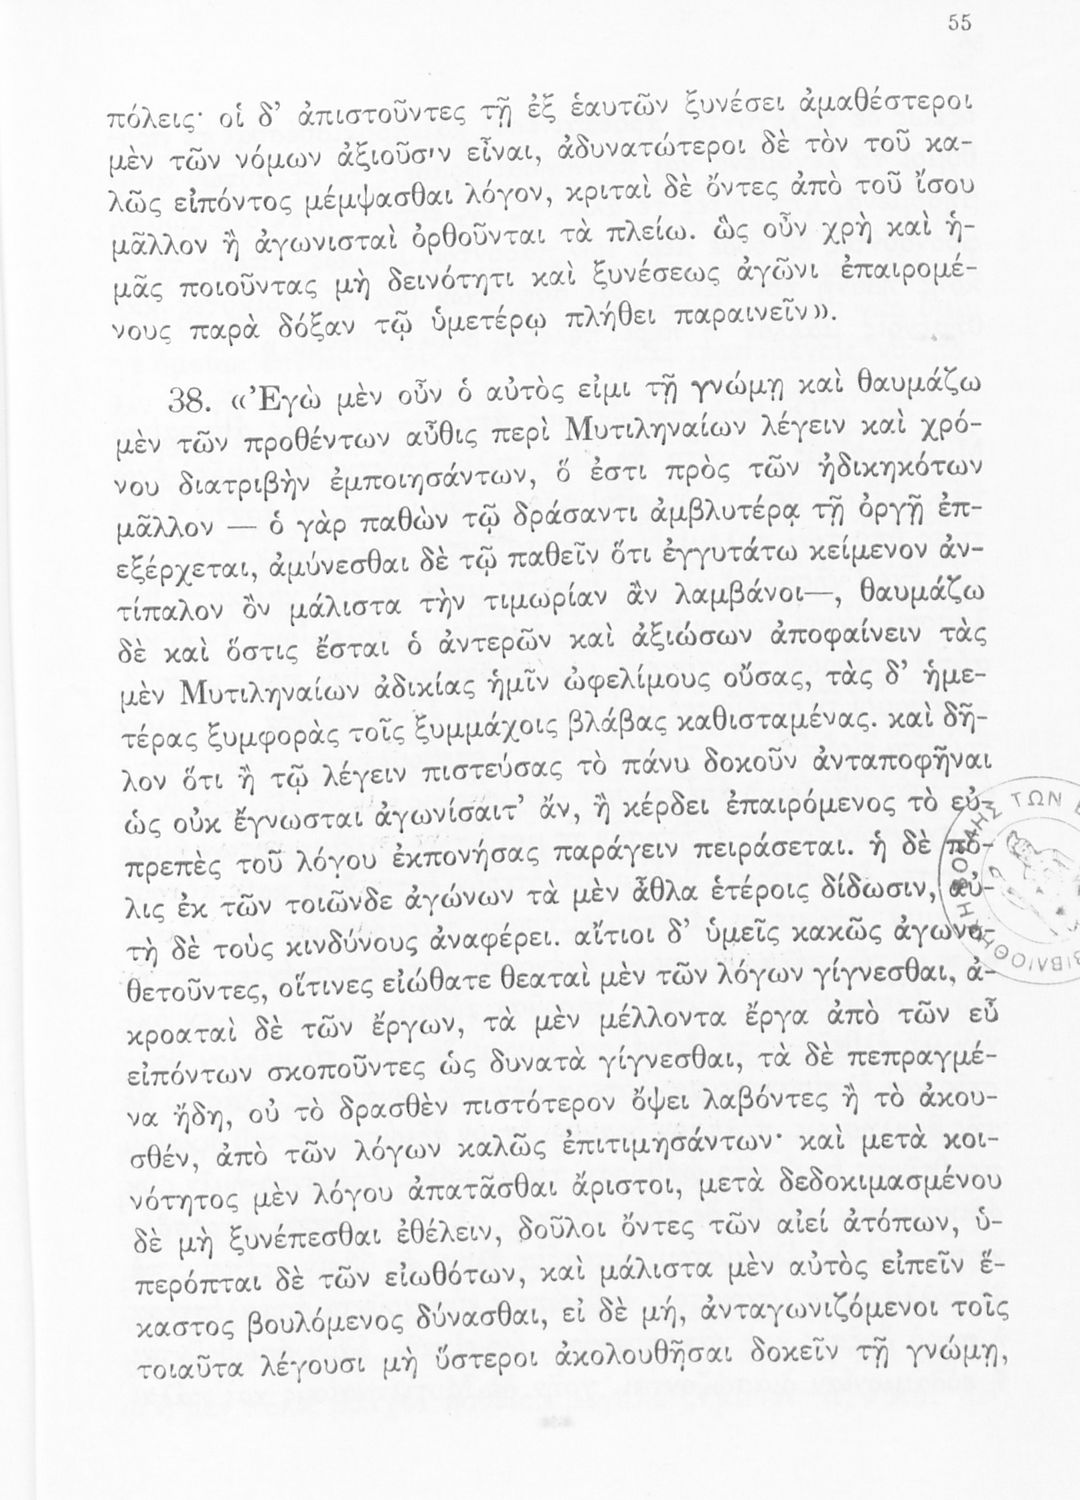 55
πόλεις· οἱ δ’ ἀπιστοῦντες τῇ ἐξ ἑαυτῶν ξυνέσει ἀμαθέστεροι
μὲν τῶν νόμων ἀξιοῦσιν εἶναι, ἀδυνατώτεροι δὲ τὸν τοῦ κα-
λῶς εἰπόντος μέμψασθαι λόγον, κριταὶ δὲ ὄντες ἀπὸ τοῦ ἴσου
μᾶλλον ἢ ἀγωνισταὶ ὀρθοῦνται τὰ πλείω. ὣς οὖν χρὴ καὶ ἡ-
μᾶς ποιοῦντας μὴ δεινότητι καὶ ξυνέσεως ἀγῶνι ἐπαιρομέ-
νους παρὰ δόξαν τῷ ὑμετέρῳ πλήθει παραινεῖν».
38. «Ἐγὼ μὲν οὖν ὁ αὐτὸς εἰμι τῇ γνώμῃ καὶ θαυμάζω
μὲν τῶν προθέντων αὖθις περὶ Μυτιληναίων λέγειν καὶ χρό-
νου διατριβὴν ἐμποιησάντων, ὅ ἐστι πρὸς τῶν ἠδικηκότων
μᾶλλον — ὁ γὰρ παθὼν τῷ δράσαντι ἀμβλυτέρᾳ τῇ ὀργῇ ἐπ-
εξέρχεται, ἀμύνεσθαι δὲ τῷ παθεῖν ὅτι ἐγγυτάτω κείμενον ἀν-
τίπαλον ὂν μάλιστα τὴν τιμωρίαν ἂν λαμβάνοι—, θαυμάζω
δὲ καὶ ὅστις ἔσται ὁ ἀντερῶν καὶ ἀξιώσων ἀποφαίνειν τὰς
μὲν Μυτιληναίων ἀδικίας ἡμῖν ὠφελίμους οὔσας, τὰς δ’ ἡμε-
τέρας ξυμφορὰς τοῖς ξυμμάχοις βλάβας καθισταμένας. καὶ δῆ-
λον ὅτι ἢ τῷ λέγειν πιστεύσας τὸ πάνυ δοκοῦν ἀνταποφῆναι
ὡς οὐκ ἔγνωσται ἀγωνίσαιτ’ ἄν, ἢ κέρδει ἐπαιρόμενος τὸ εὐ-
πρεπὲς τοῦ λόγου ἐκπονήσας παράγειν πειράσεται. ἡ δὲ πό-
λις ἐκ τῶν τοιῶνδε ἀγώνων τὰ μὲν ἆθλα ἑτέροις δίδωσιν, αὐ-
τὴ δὲ τοὺς κινδύνους ἀναφέρει. αἴτιοι δ’ ὑμεῖς κακῶς ἀγωνο-
θετοῦντες, οἵτινες εἰώθατε θεαταὶ μὲν τῶν λόγων γίγνεσθαι, ἀ-
κροαταὶ δὲ τῶν ἔργων, τὰ μὲν μέλλοντα ἔργα ἀπὸ τῶν εὖ
εἰπόντων σκοποῦντες ὡς δυνατὰ γίγνεσθαι, τὰ δὲ πεπραγμέ-
να ἤδη, οὐ τὸ δρασθὲν πιστότερον ὄψει λαβόντες ἢ τὸ ἀκου-
σθέν, ἀπὸ τῶν λόγων καλῶς ἐπιτιμησάντων· καὶ μετὰ κοι-
νότητος μὲν λόγου ἀπατᾶσθαι ἄριστοι, μετὰ δεδοκιμασμένου
δὲ μὴ ξυνέπεσθαι ἐθέλειν, δοῦλοι ὄντες τῶν αἰεί ἀτόπων, ὑ-
περόπται δὲ τῶν εἰωθότων, καὶ μάλιστα μὲν αὐτὸς εἰπεῖν ἕ-
καστος βουλόμενος δύνασθαι, εἰ δὲ μή, ἀνταγωνιζόμενοι τοῖς
τοιαῦτα λέγουσι μὴ ὕστεροι ἀκολουθῆσαι δοκεῖν τῇ γνώμῃ,
ΒΙΒΛΙΟΘΗΚΗ ΒΟΥΛΗΣ ΤΩΝ